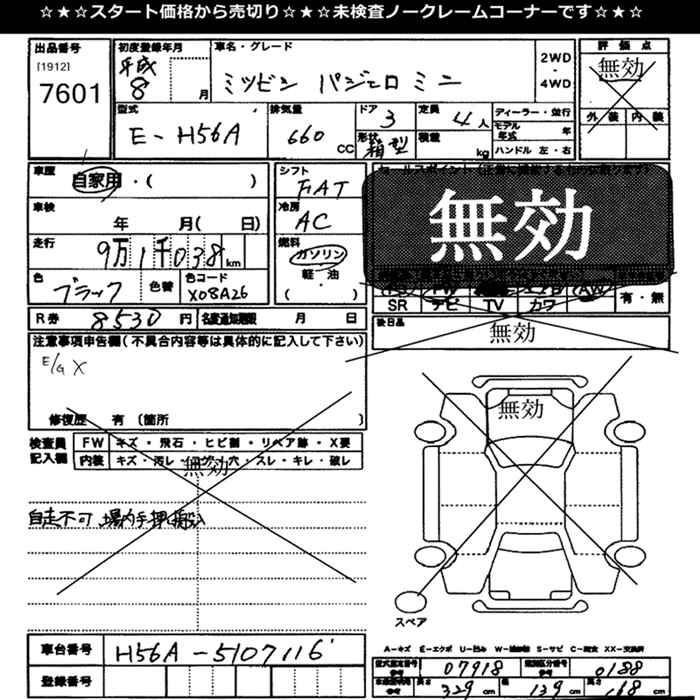 ☆★☆★スタート価格から売切り☆★☆★未検査ノークレームコーナーです☆★☆
出品番号
[1912]
7601
初度登録年月
平成
8 月
車名・グレード
ミツビシ パジェロ ミニ
2WD
・
4WD
評価点
無効
外装 内装
型式
E-H56A
排気量
660 CC
ドア
3
形状
箱型
定員
4 人
積載
kg
ディーラー・並行
モデル年式 年
ハンドル 左・右
車歴
自家用・( )
車検
年 月( 日)
走行
9万1千038 km
色
ブラック
色替
色コード
X08A26
シフト
FAT
冷房
AC
燃料
ガソリン
軽・油
( )
無効
SR テレビ TV カワ AW 有・無
後日品
無効
R券 8530 円 名変通知期限 月 日
注意事項申告欄(不具合内容等は具体的に記入して下さい)
E/G X
修復歴 有 〔箇所 〕
検査員記入欄
FW キズ・飛石・ヒビ割・リペア跡・X要
内装 キズ・汚レ・コゲ・穴・スレ・キレ・破レ
無効
自走不可 場内手押し搬入
無効
スペア
A-キズ E-エクボ U-凹み W-補修跡 S-サビ C-腐食 XX-交換済
車台番号 H56A-5107116
登録番号
型式指定番号 参考 07918 類別区分番号 参考 0188
参考 長さ 329 cm 幅 139 cm 高さ 118 cm